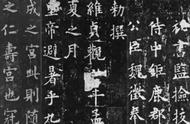 祕書監檢校
侍中鉅鹿郡
公臣魏徵奉
勅撰
維貞觀年孟
夏之月
帝避暑乎九
成之宮此則隨
之仁壽宮也